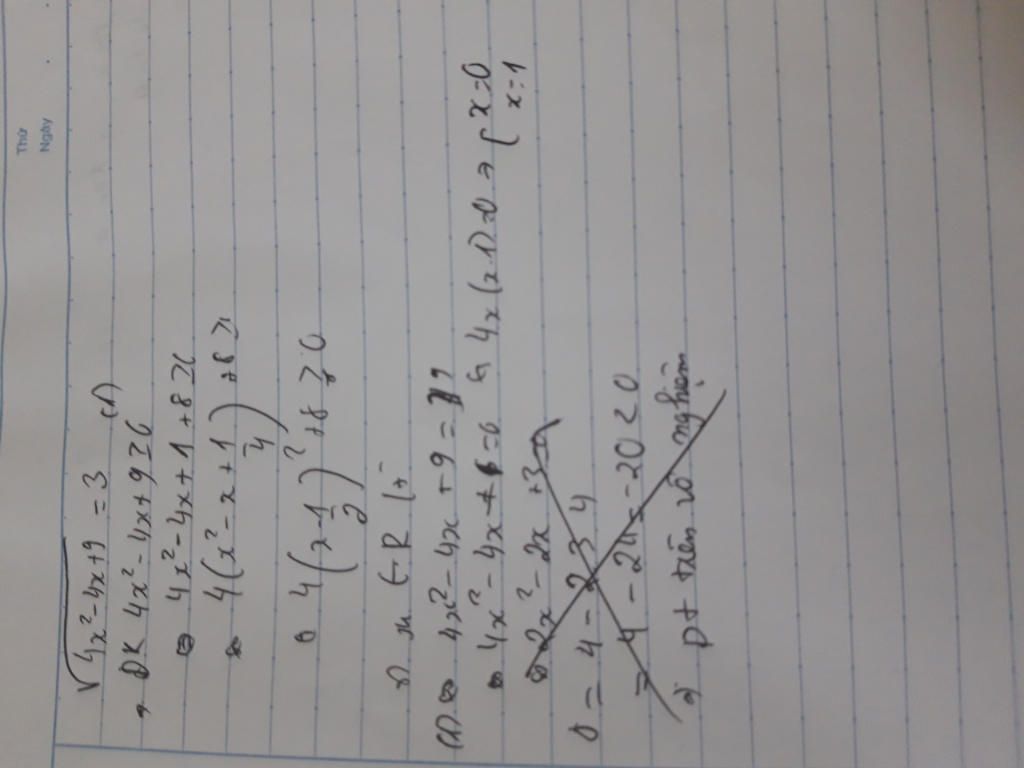 Thứ
Ngày
√(4x²-4x+9) = 3 (1)
ĐK 4x²-4x+9≥0
⇔ 4x²-4x+1+8≥0
⇔ 4(x²-x+1/4)+8≥
4(x-1/2)²+8≥0
(1) ⇔ 4x²-4x+9=9
⇔ 4x²-4x=0 ⇔ 4x(x-1)=0 ⇒ [x=0
x=1
⇔ 2x²-2x+3=0
Δ = 4-2.3.4
= 4-24=-20<0
⇒ pt trên vô nghiệm